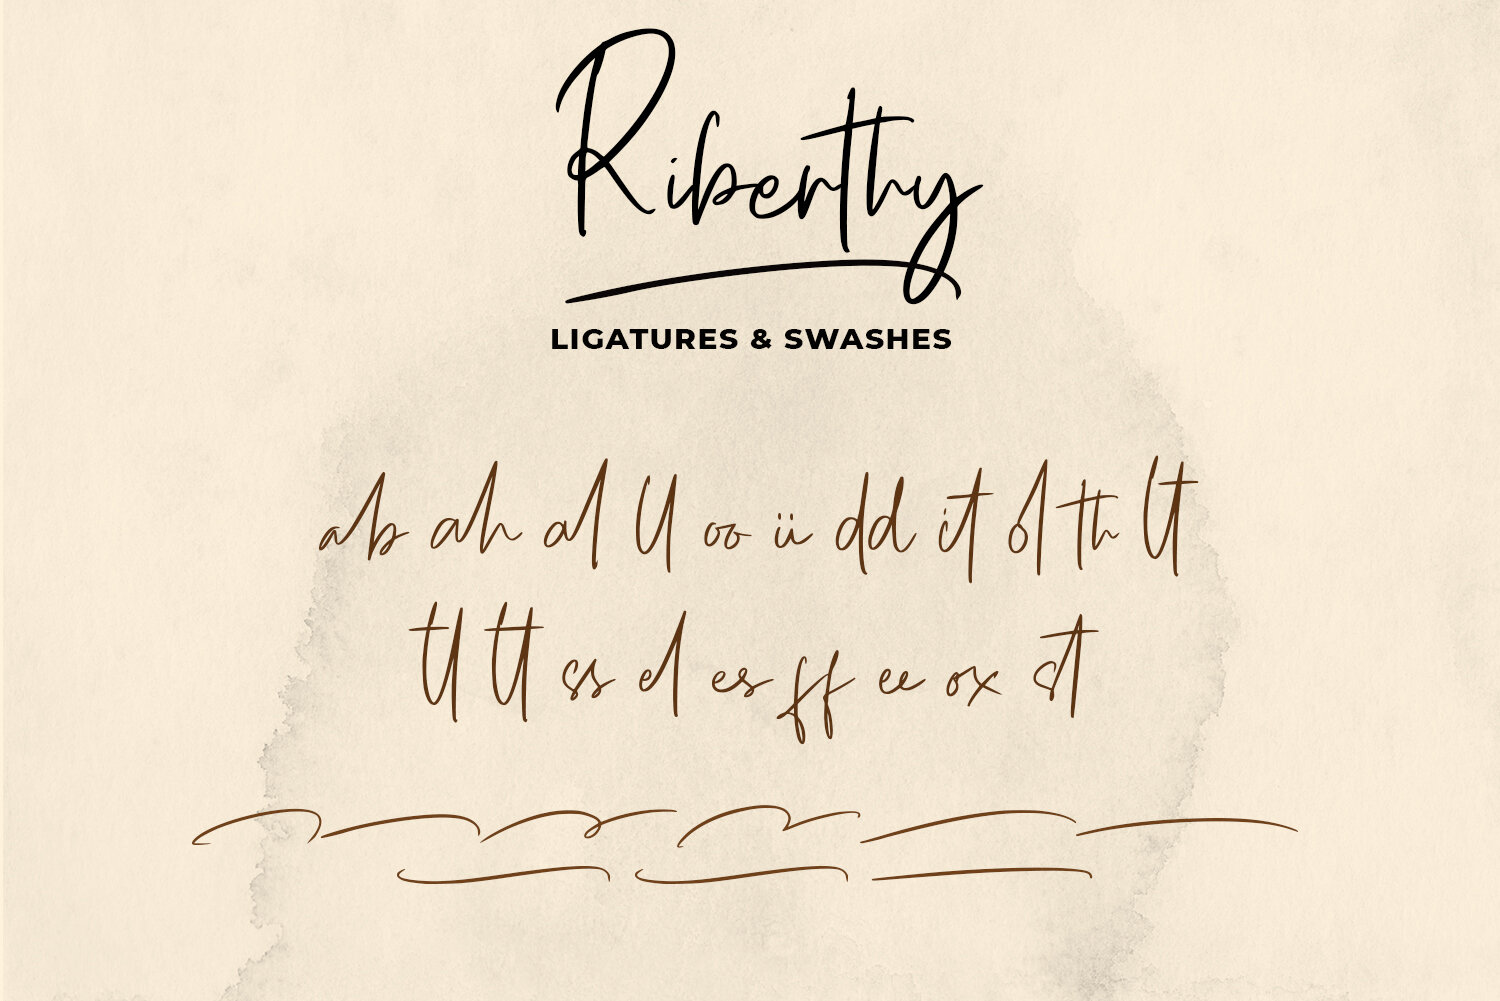 Riberthy
LIGATURES & SWASHES
ab ah al ll oo ii dd it ol th lt
tl tt ss el es ff ee ox st